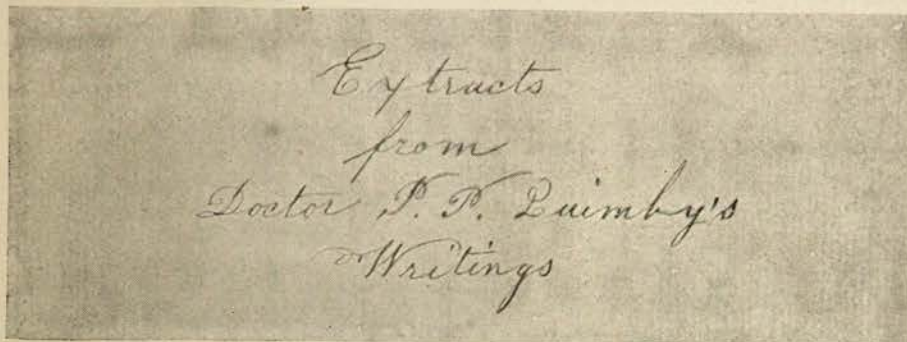 Extracts
from
Doctor P. P. Quimby's
Writings